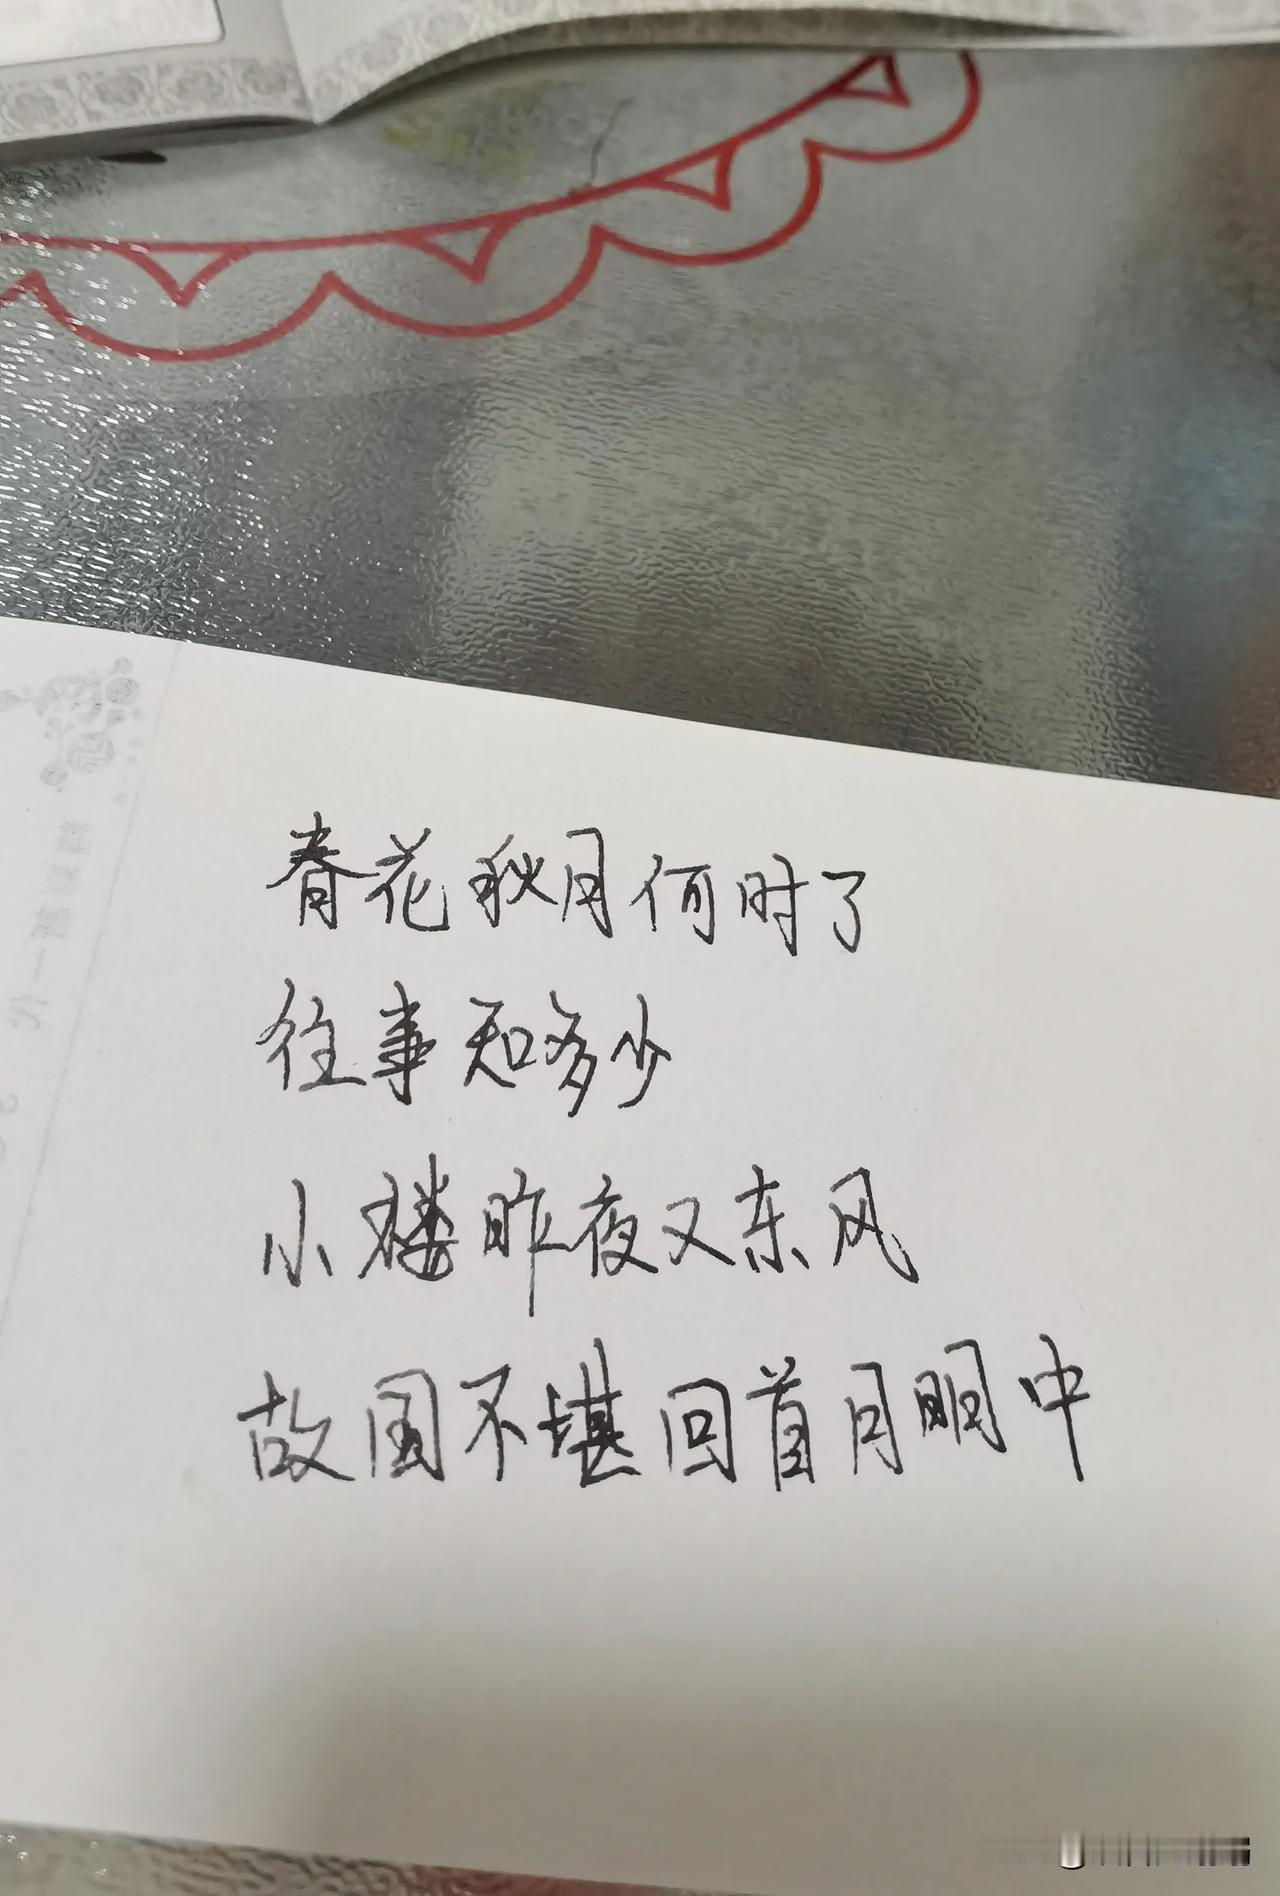 春花秋月何时了
往事知多少
小楼昨夜又东风
故国不堪回首月明中